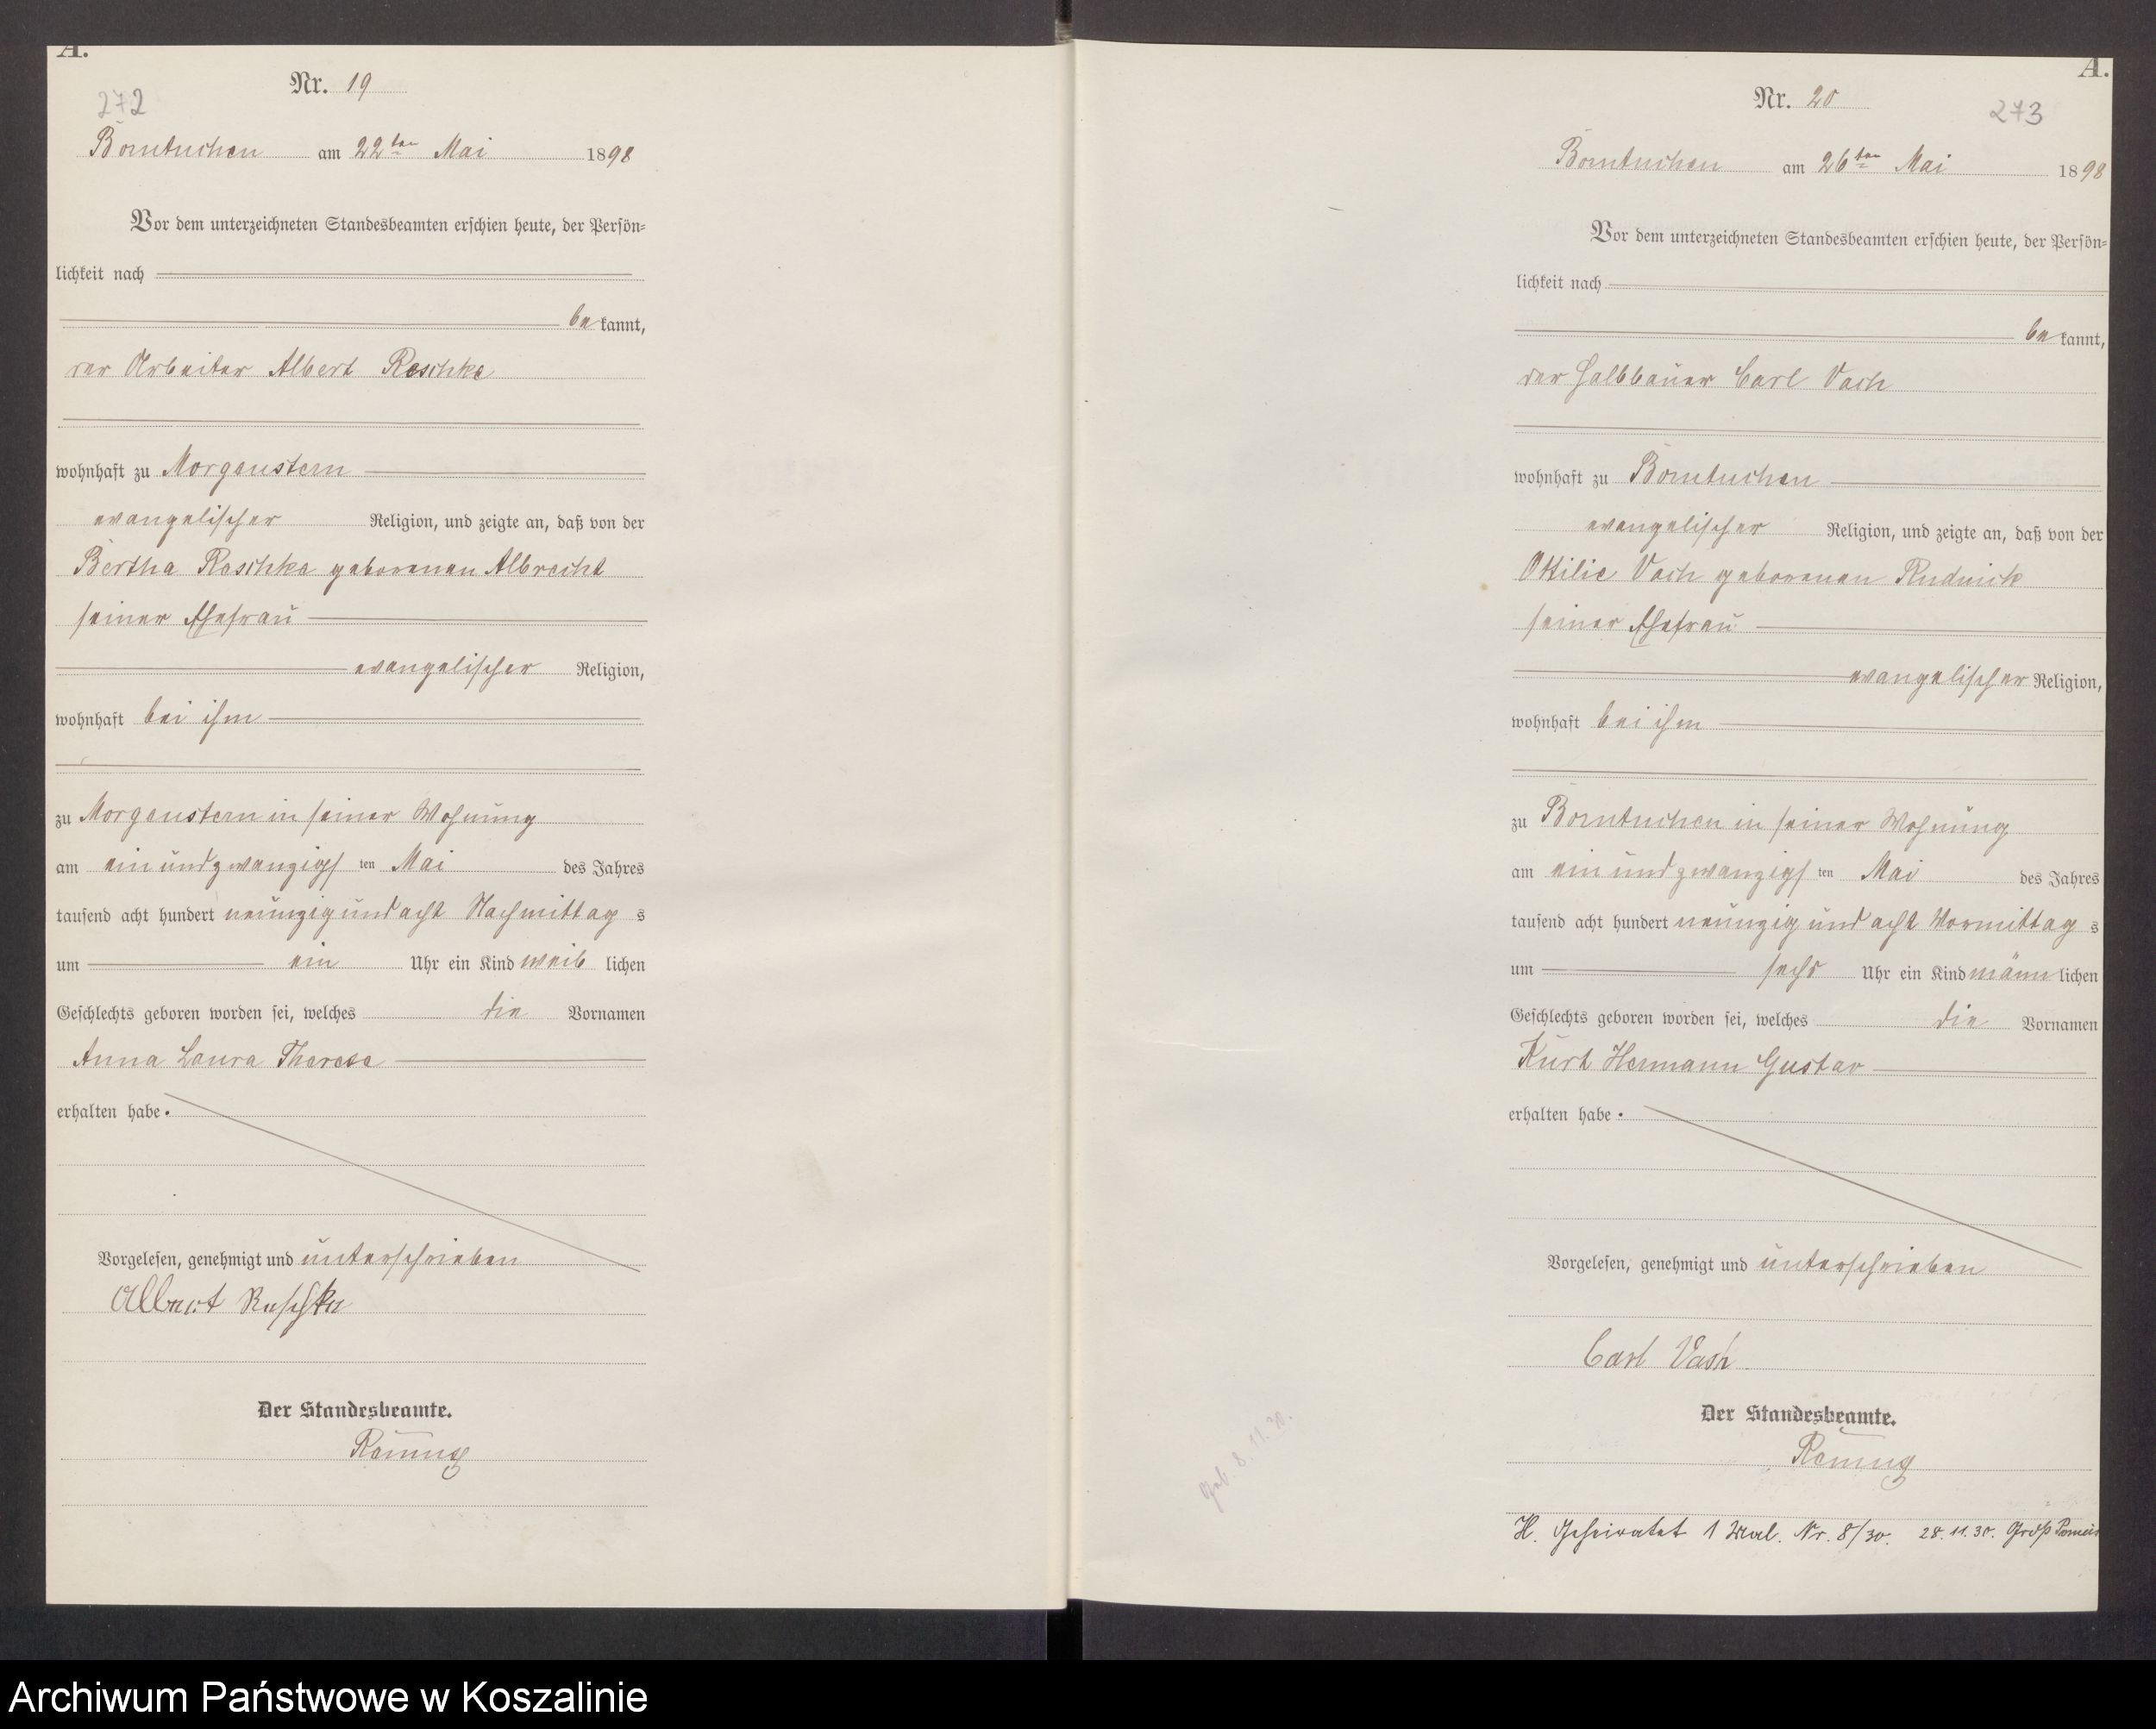 A.
Nr. 19
272
Borntuchen am 22ten Mai 1898
Vor dem unterzeichneten Standesbeamten erschien heute, der Persön-
lichkeit nach
be kannt,
der Arbeiter Albert Reschke
wohnhaft zu Morgenstern
evangelischer Religion, und zeigte an, daß von der
Bertha Reschke geborenen Albrecht
seiner Ehefrau
evangelischer Religion,
wohnhaft bei ihm
zu Morgenstern in seiner Wohnung
am ein und zwanzigs ten Mai des Jahres
tausend acht hundert neunzig und acht Nachmittag s
um ein Uhr ein Kind weib lichen
Geschlechts geboren worden sei, welches die Vornamen
Anna Laura Therese
erhalten habe.
Vorgelesen, genehmigt und unterschrieben
Albert Reschke
Der Standesbeamte.
A.
Nr. 20
273
Borntuchen am 26ten Mai 1898
Vor dem unterzeichneten Standesbeamten erschien heute, der Persön-
lichkeit nach
be kannt,
der Halbbauer Carl Vach
wohnhaft zu Borntuchen
evangelischer Religion, und zeigte an, daß von der
Ottilie Vach geborenen Rudnick
seiner Ehefrau
evangelischer Religion,
wohnhaft bei ihm
zu Borntuchen in seiner Wohnung
am ein und zwanzigs ten Mai des Jahres
tausend acht hundert neunzig und acht Vormittag s
um sechs Uhr ein Kind männ lichen
Geschlechts geboren worden sei, welches die Vornamen
Kurt Hermann Gustav
erhalten habe.
Vorgelesen, genehmigt und unterschrieben
Carl Vach
Der Standesbeamte.
H. Geheiratet 1 Mal. Nr. 8/30. 28.11.30. Groß
8.11.30.
Archiwum Państwowe w Koszalinie